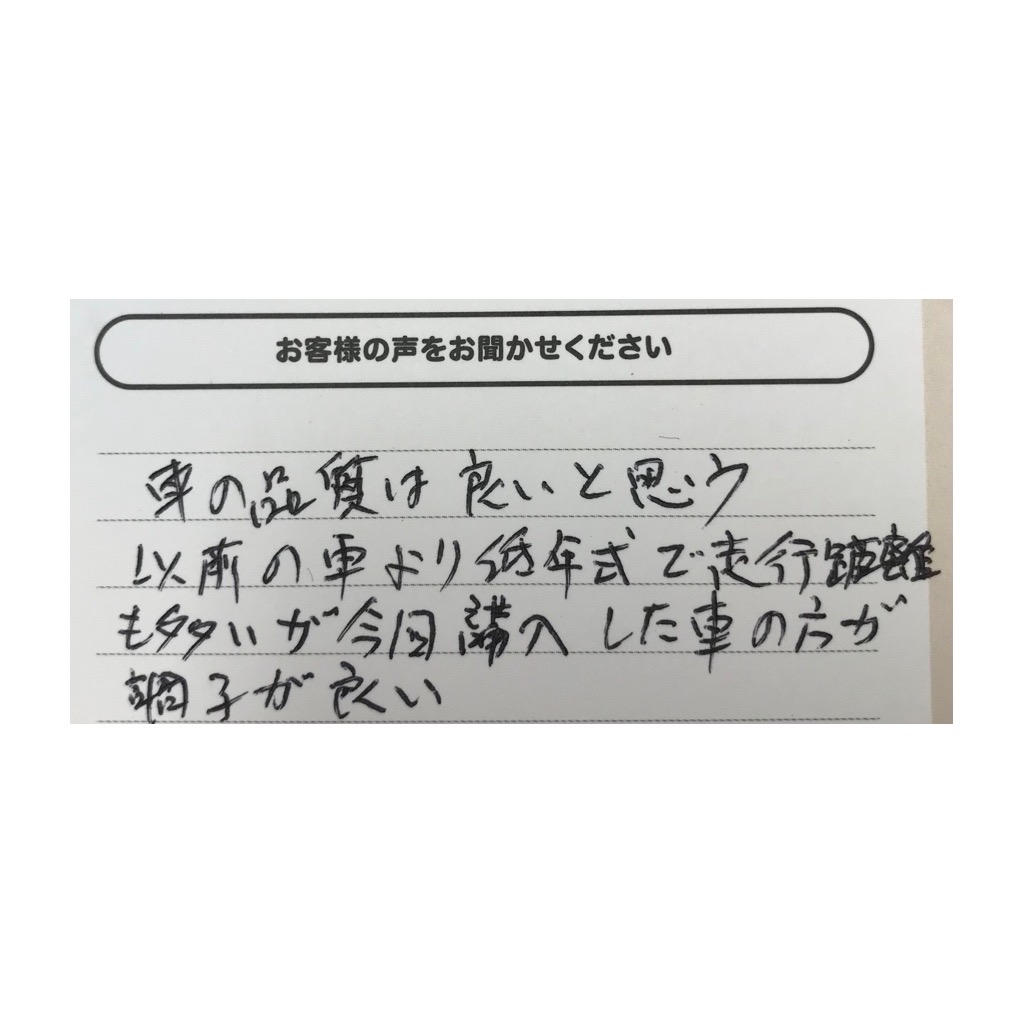 お客様の声をお聞かせください
車の品質は良いと思う
以前の車より低年式で走行距離
も多いが今回講入した車の方が
調子が良い